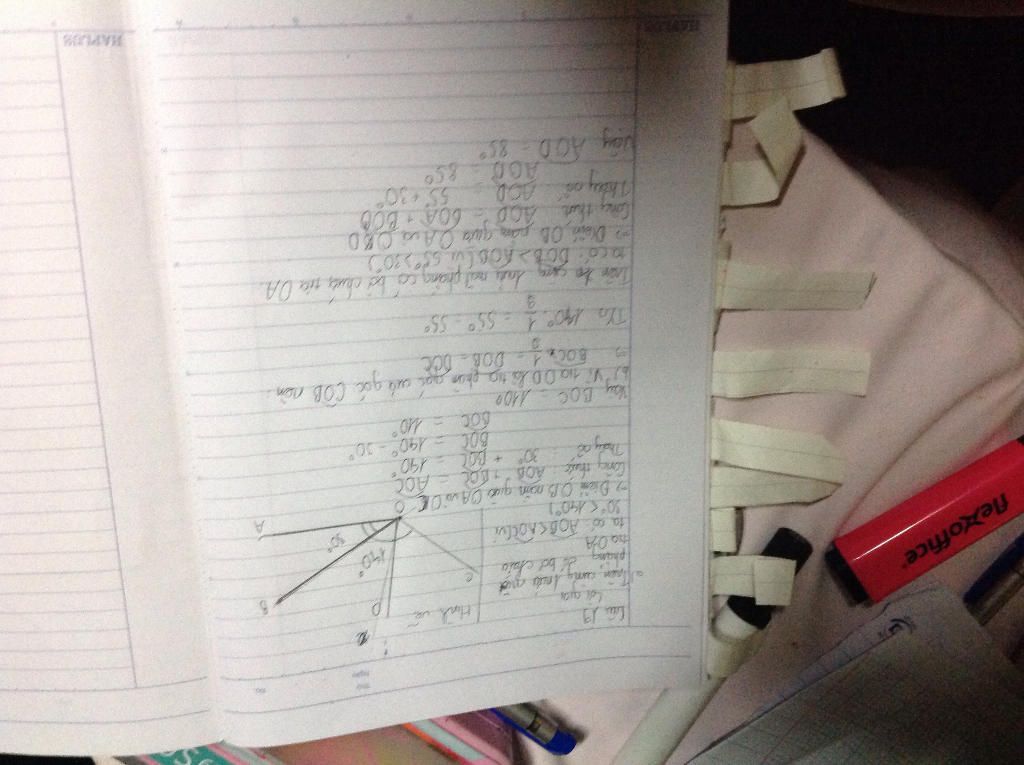 Câu 19
Lời giải
Hình vẽ
a) Trên cùng nửa mặt
phẳng có bờ chứa
tia OA
ta có AOB < AOC (vì
30° < 140°)
=> Điểm OB nằm giữa OA và OC
Công thức: AOB + BOC = AOC
Thay số: 30° + BOC = 140°
BOC = 140° - 30°
BOC = 110°
Vậy BOC = 110°
b) Vì tia OD là tia phân giác của góc COB nên:
=> BOC . 1/2 = DOB = DOC
110° . 1/2 = 55° = 55°
Trên cùng nửa mặt phẳng có bờ chứa tia OA.
ta có: DOB > AOB (vì 55° > 30°)
=> Điểm OB nằm giữa OA và OD
Công thức: AOD = BOA + BOD
Thay số: AOD = 55° + 30°
AOD = 85°
Vậy AOD = 85°
A
B
C
D
O
30°
140°
flexoffice
HAPLUS
HAPLUS